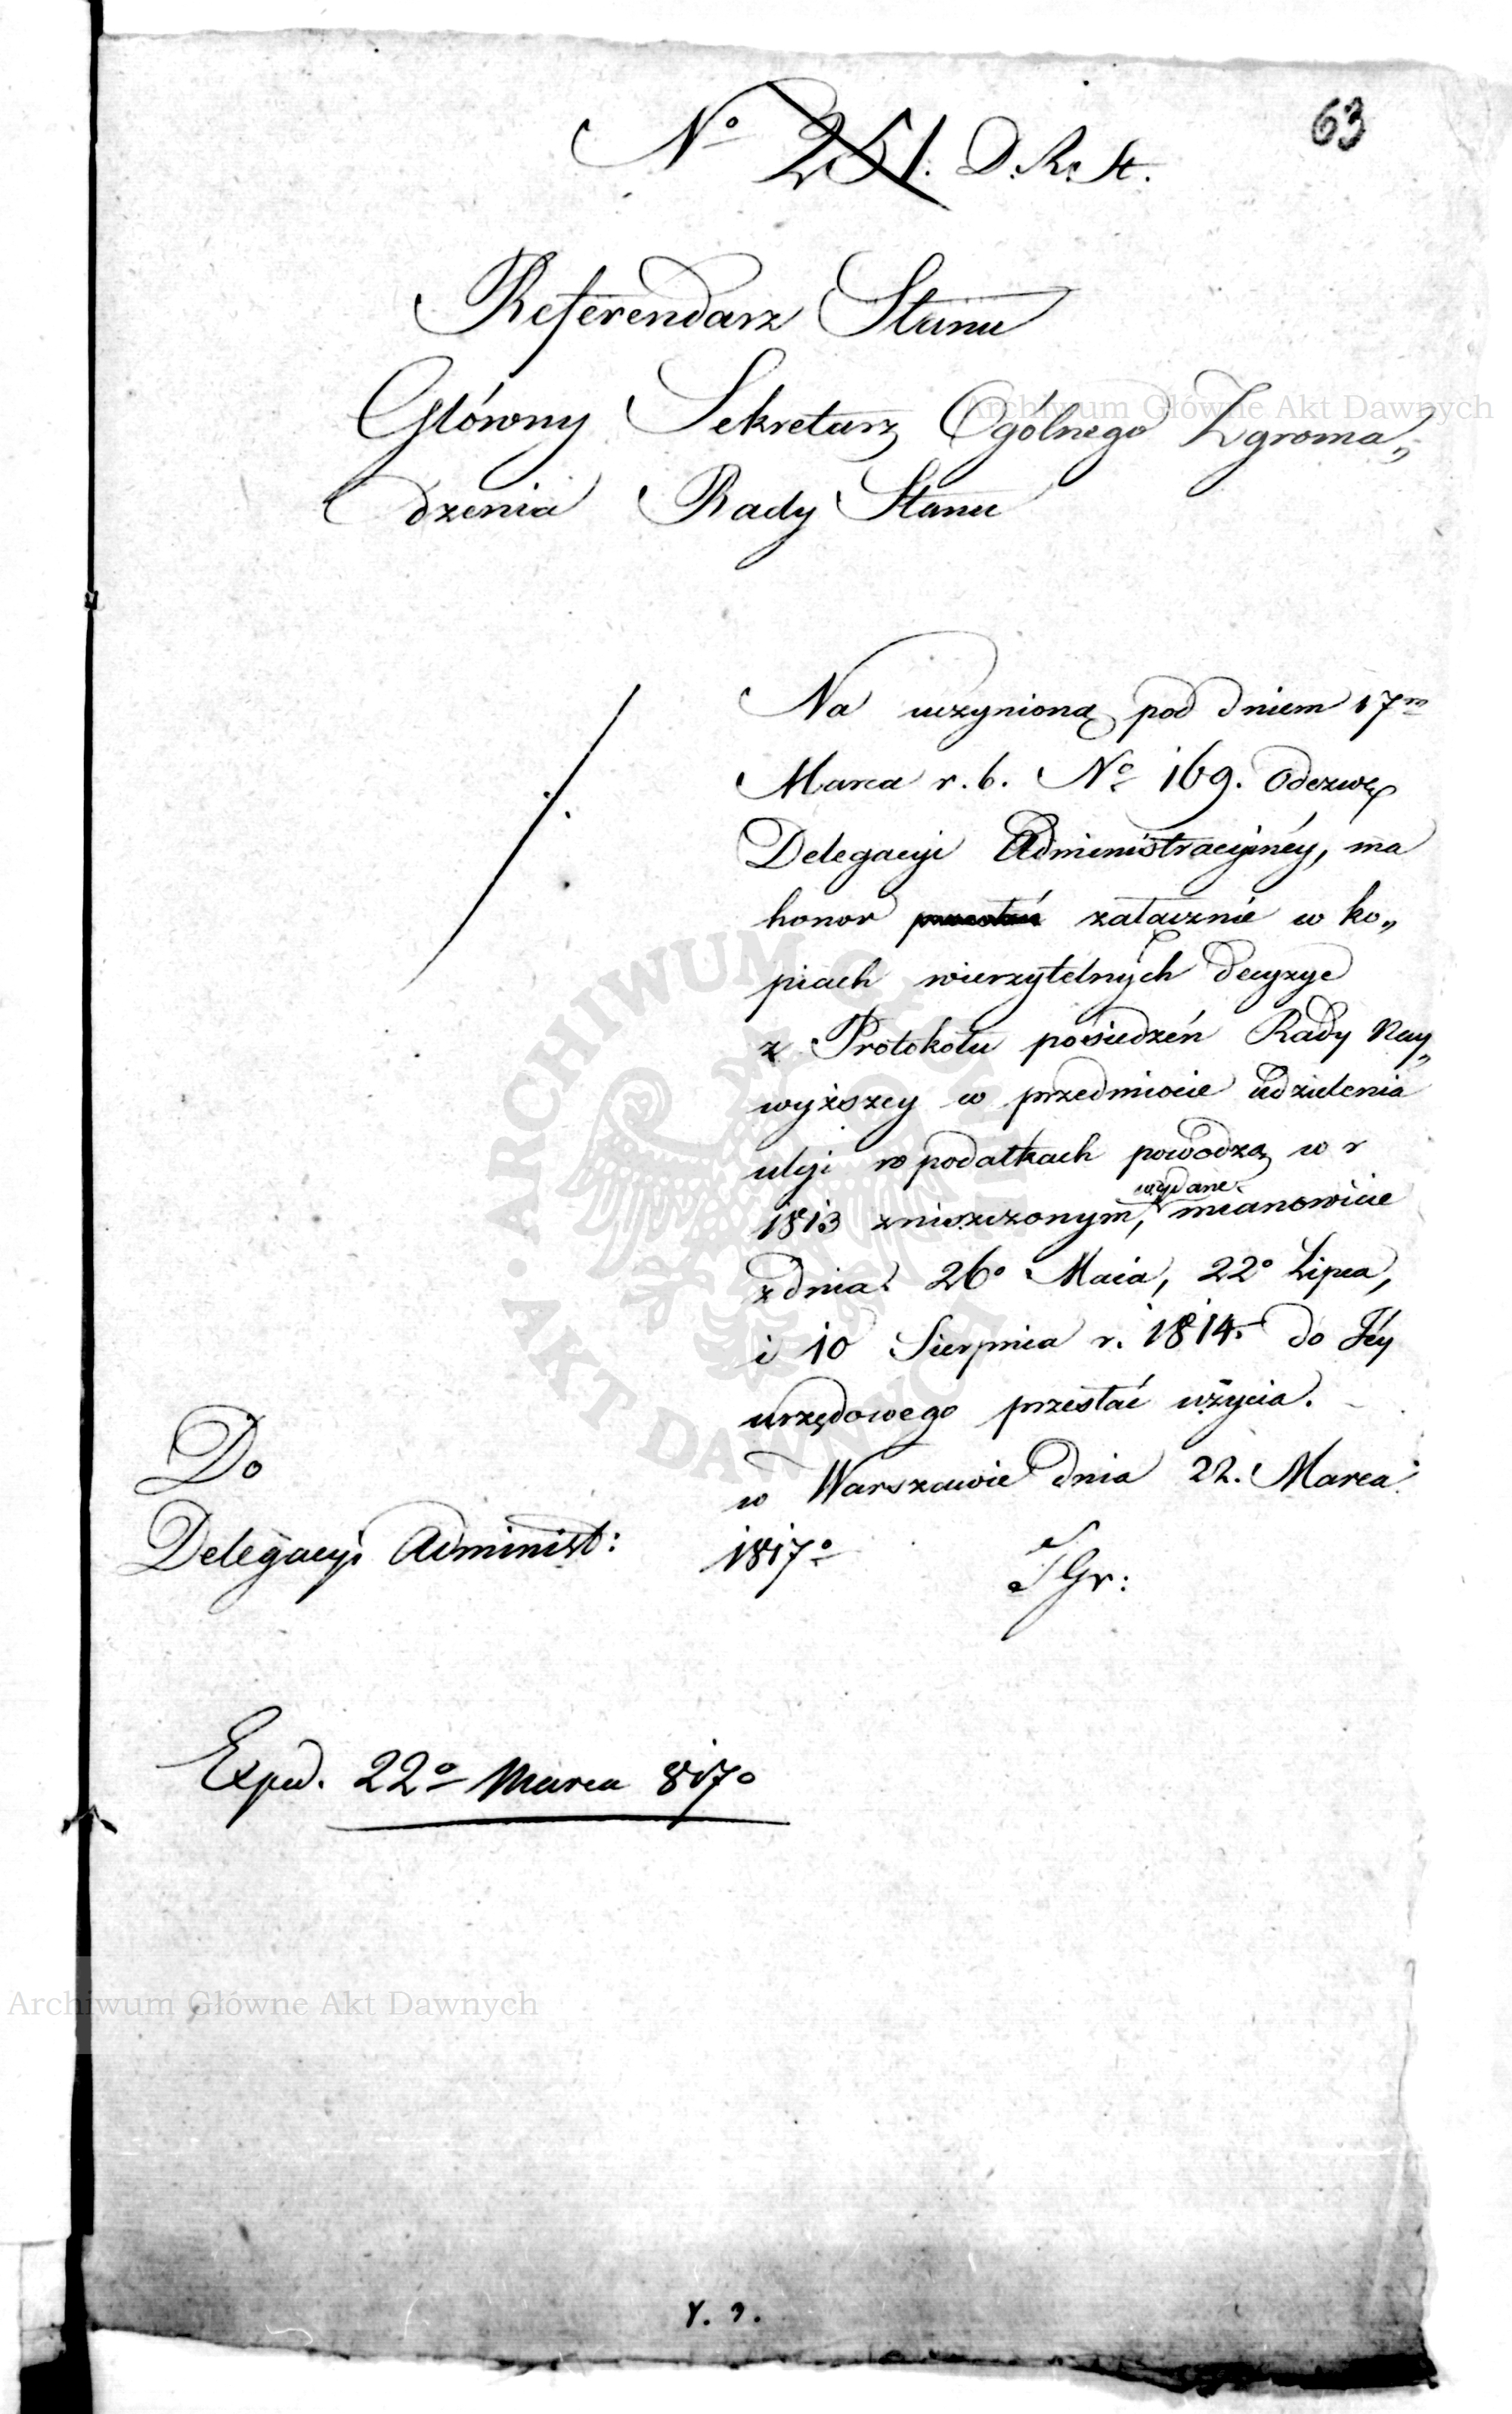 63
No 251. D. R. St.
Referendarz Stanu
Główny Sekretarz Ogólnego Zgroma„
dzenia Rady Stanu
Na uczynioną pod dniem 17m
Marca r. b. No 169. Odezwę
Delegacyi Administracyinéy, ma
honor przesłać załącznie w ko„
piach wierzytelnych decyzye
z Protokołu posiedzéń Rady Nay„
wyższey w przedmiocie udzielenia
ulgi w podatkach powodzą w r
1813 zniszczonym, wydane mianowicie
z dnia 26o Maia, 22o Lipca,
i 10 Sierpnia r. 1814. do Jéy
urzędowego przesłać użycia.
w Warszawie dnia 22. Marca
1817o
JGr:
Do
Delegacyi Administ:
Exped. 22o Marca 817o
Archiwum Główne Akt Dawnych
Archiwum Główne Akt Dawnych
ARCHIWUM GŁÓWNE AKT DAWNYCH